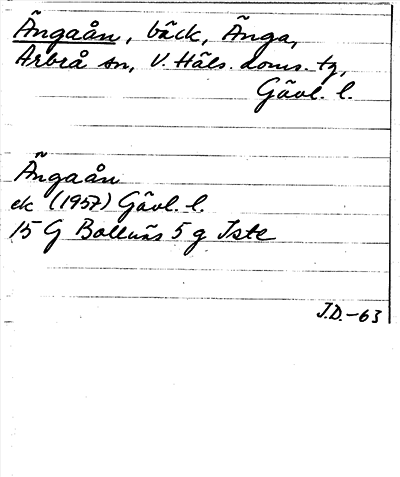 Ängaån, bäck, Änga,
Arbrå sn, V. Häls. doms. tg,
Gävl. l.
Ängaån
ek (1957) Gävl. l.
15 G Bollnäs 5 g Iste
J.D.-63